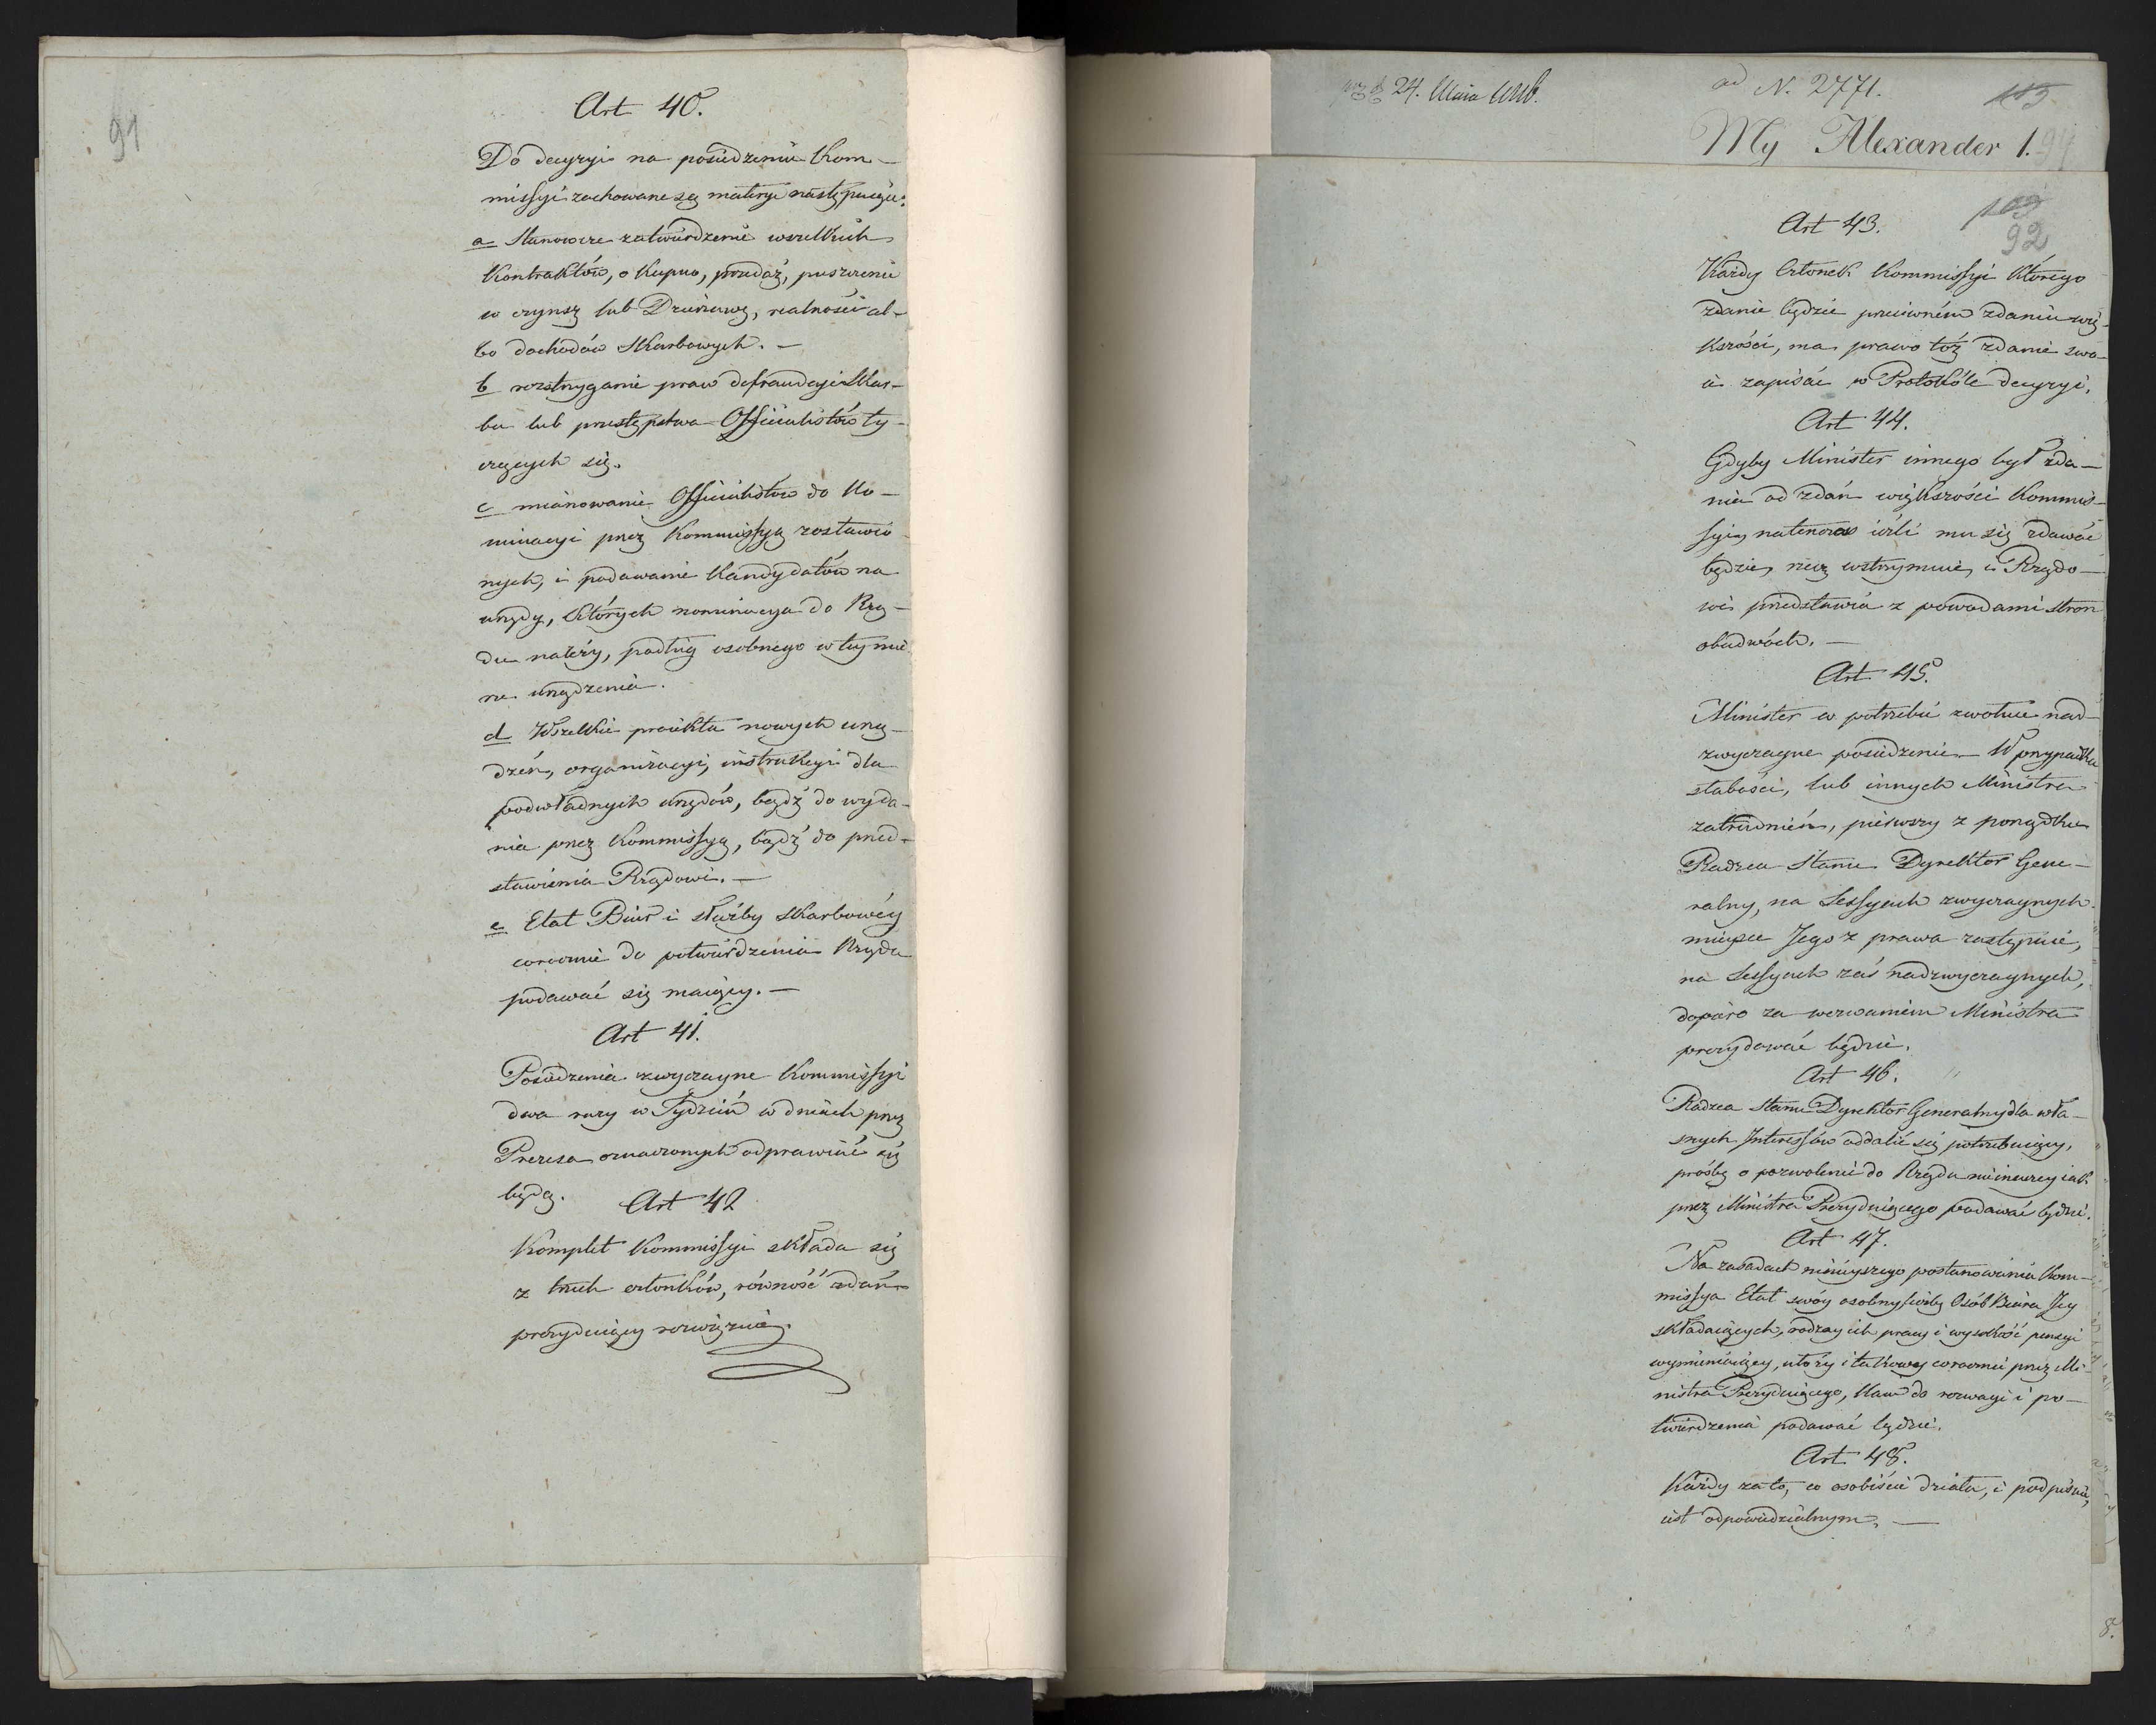 91
Art 40.
Do decyzyi na posiedzeniu Kom-
missyi zachowane są materye następuiące:
a Stanowcze zatwierdzenie wszelkich
Kontraktów, o Kupno, przedaż, puszczenie
w czynsz lub Dzierżawę, realności al-
bo dochodów Skarbowych. —
b rozstrzyganie praw defraudacyi Skar-
bu lub przestępstwa Officialistów ty-
czących się.
c mianowanie Officialistów do No-
minacyi przez Kommissyą zostawio-
nych, i podawanie Kandydatów na
urzędy, których nominacya do Rzą-
du należy, podług osobnego w tey mie-
rze urządzenia.
d Wszelkie proiekta nowych urzą-
dzeń, organizacyi, instrukcyi dla
podwładnych urzędów, bądź do wyda-
nia przez Kommissyą, bądź do przed-
stawienia Rządowi. —
e Etat Biur i służby skarbowéy
corocznie do potwierdzenia Rządu
podawać się maiący. —
Art 41.
Posiedzenia zwyczayne Kommissyi
dwa razy w Tydzień w dniach przez
Prezesa oznaczonych odprawiać się
będą.
Art 42
Komplet Kommissyi składa się
z trzech członków, równość zdań
prezyduiący rozwiązuie.
24. Maia
ad N. 2771.
My Alexander 1.
94
103
92
Art 43.
Każdy Członek Kommissyi którego
zdanie będzie przeciwném zdaniu wię-
kszości, ma prawo toż zdanie swo-
ie zapisać w Protokóle decyzyi.
Art 44.
Gdyby Minister innego był zda-
nia od zdań większości Kommis-
syi, natenczas ieśli mu się zdawać
będzie, rzecz wstrzymuie, i Rządo-
wi przedstawia z powodami stron
obudwóch. —
Art 45.
Minister w potrzebie zwołuie nad-
zwyczayne posiedzenie — W przypadku
słabości, lub innych Ministra
zatrudnień, pierwszy z porządku
Radzca Stanu Dyrektor Gene-
ralny, na Sessyach zwyczaynych
mieysce Jego z prawa zastępuie,
na Sessyach zaś nadzwyczaynych,
dopiéro za wezwaniem Ministra
prezydować będzie.
Art 46.
Radzca Stanu Dyrektor Generalny dla wła-
snych Interessów oddalić się potrzebuiący,
prośbę o pozwolenie do Rządu nieinaczey iak
przez Ministra Prezyduiącego podawać będzie.
Art 47.
Na zasadach ninieyszego postanowienia Kom-
missya Etat swóy osobny liczbę Osób Biura Jey
składaiących, rodzay ich pracy i wysokość pensyi
wymieniaiący, ułoży i takowy corocznie przez Mi-
nistra Prezyduiącego, Nam do rozwagi i po-
twierdzenia podawać będzie.
Art. 48.
Każdy za to, co osobiście działa, i podpisuie,
iest odpowiedzialnym. —
8.